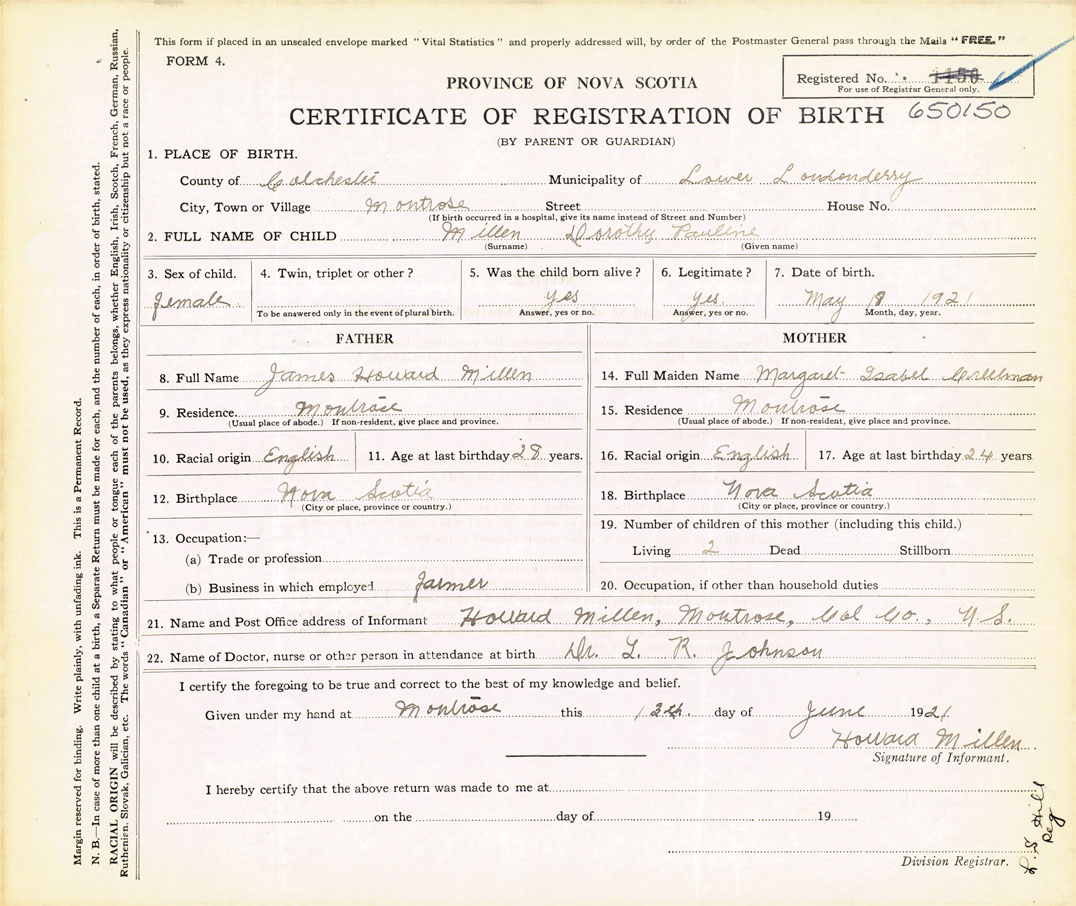 This form if placed in an unsealed envelope marked "Vital Statistics" and properly addressed will, by order of the Postmaster General pass through the Mails "FREE."
FORM 4.
Registered No. 1150
For use of Registrar General only.
PROVINCE OF NOVA SCOTIA
CERTIFICATE OF REGISTRATION OF BIRTH 650150
(BY PARENT OR GUARDIAN)
1. PLACE OF BIRTH.
County of Colchester Municipality of Lower Londonderry
City, Town or Village Montrose Street House No.
(If birth occurred in a hospital, give its name instead of Street and Number)
2. FULL NAME OF CHILD Millen Dorothy Pauline
(Surname) (Given name)
3. Sex of child. 4. Twin, triplet or other? 5. Was the child born alive? 6. Legitimate? 7. Date of birth.
female yes yes. May 18 1921
To be answered only in the event of plural birth. Answer, yes or no. Answer, yes or no. Month, day, year.
FATHER MOTHER
8. Full Name James Howard Millen 14. Full Maiden Name Margaret Isabel Creelman
9. Residence. Montrose 15. Residence Montrose
(Usual place of abode.) If non-resident, give place and province. (Usual place of abode.) If non-resident, give place and province.
10. Racial origin English 11. Age at last birthday 28 years. 16. Racial origin English 17. Age at last birthday 24 years
12. Birthplace Nova Scotia 18. Birthplace Nova Scotia
(City or place, province or country.) (City or place, province or country.)
13. Occupation:— 19. Number of children of this mother (including this child.)
(a) Trade or profession Living 2 Dead Stillborn
(b) Business in which employed farmer 20. Occupation, if other than household duties
21. Name and Post Office address of Informant Howard Millen, Montrose, Col Co., N.S.
22. Name of Doctor, nurse or other person in attendance at birth Dr. T. R. Johnson
I certify the foregoing to be true and correct to the best of my knowledge and belief.
Given under my hand at Montrose this day of June 1921.
Howard Millen
Signature of Informant.
I hereby certify that the above return was made to me at
on the day of 19
Division Registrar.
Hill
Reg
Margin reserved for binding. Write plainly, with unfading ink. This is a Permanent Record.
N. B.—In case of more than one child at a birth, a Separate Return must be made for each, and the number of each, in order of birth, stated.
RACIAL ORIGIN will be described by stating to what people or tongue each of the parents belongs, whether English, Irish, Scotch, French, German, Russian,
Ruthenien, Slovak, Galician, etc. The words "Canadian" or "American" must not be used, as they express nationality or citizenship but not a race or people.